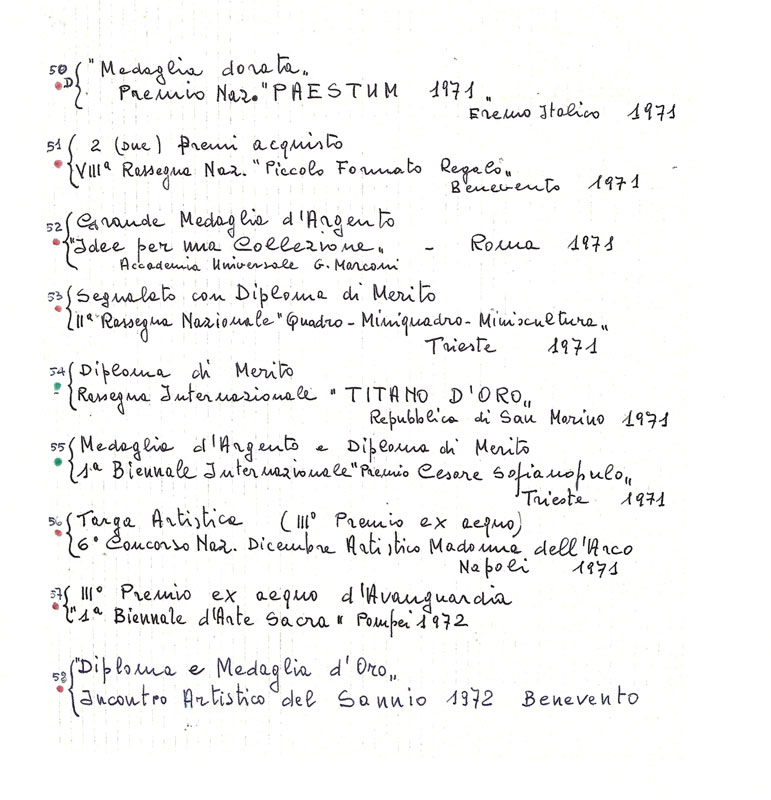 50 "Medaglia dorata„
D Premio Naz. "PAESTUM 1971„
Eremo Italico 1971
51 2 (Due) Premi acquisto
VIIIª Rassegna Naz. "Piccolo Formato Regalo„
Benevento 1971
52 Grande Medaglia d'Argento
"Idee per una Collezione„ - Roma 1971
Accademia Universale G. Marconi
53 Segnalato con Diploma di Merito
IIª Rassegna Nazionale "Quadro - Miniquadro - Miniscultura„
Trieste 1971
54 Diploma di Merito
Rassegna Internazionale "TITANO D'ORO„
Repubblica di San Marino 1971
55 Medaglia d'Argento e Diploma di Merito
1ª Biennale Internazionale "Premio Cesare Sofianopulo„
Trieste 1971
56 Targa Artistica (III° Premio ex aequo)
6° Concorso Naz. Dicembre Artistico Madonna dell'Arco
Napoli 1971
57 III° Premio ex aequo d'Avanguardia
"1ª Biennale d'Arte Sacra" Pompei 1972
58 "Diploma e Medaglia d'Oro„
Incontro Artistico del Sannio 1972 Benevento